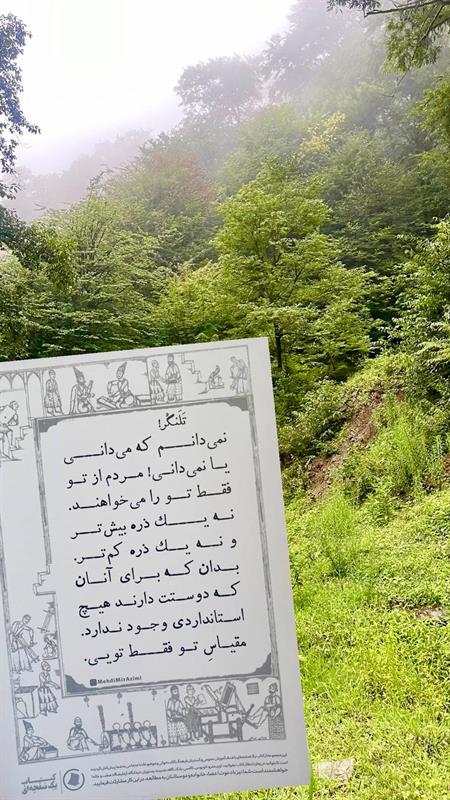 تَلَنگُر!
نمی‌دانم که می‌دانی
یا نمی‌دانی! مردم از تو
فقط تو را می‌خواهند.
نه یک ذره بیش‌تر
و نه یک ذره کم‌تر.
بدان که برای آنان
که دوستت دارند هیچ
استانداردی وجود ندارد.
مقیاسِ تو فقط تویی.
MehdiMirAzimi
کتاب
یک‌صفحه‌ای